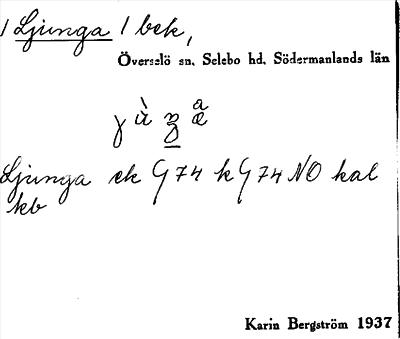 1 Ljunga 1 bek,
Överselö sn. Selebo hd. Södermanlands län
Ljunga ek G 74 k G 74 NO kal
kb
Karin Bergström 1937